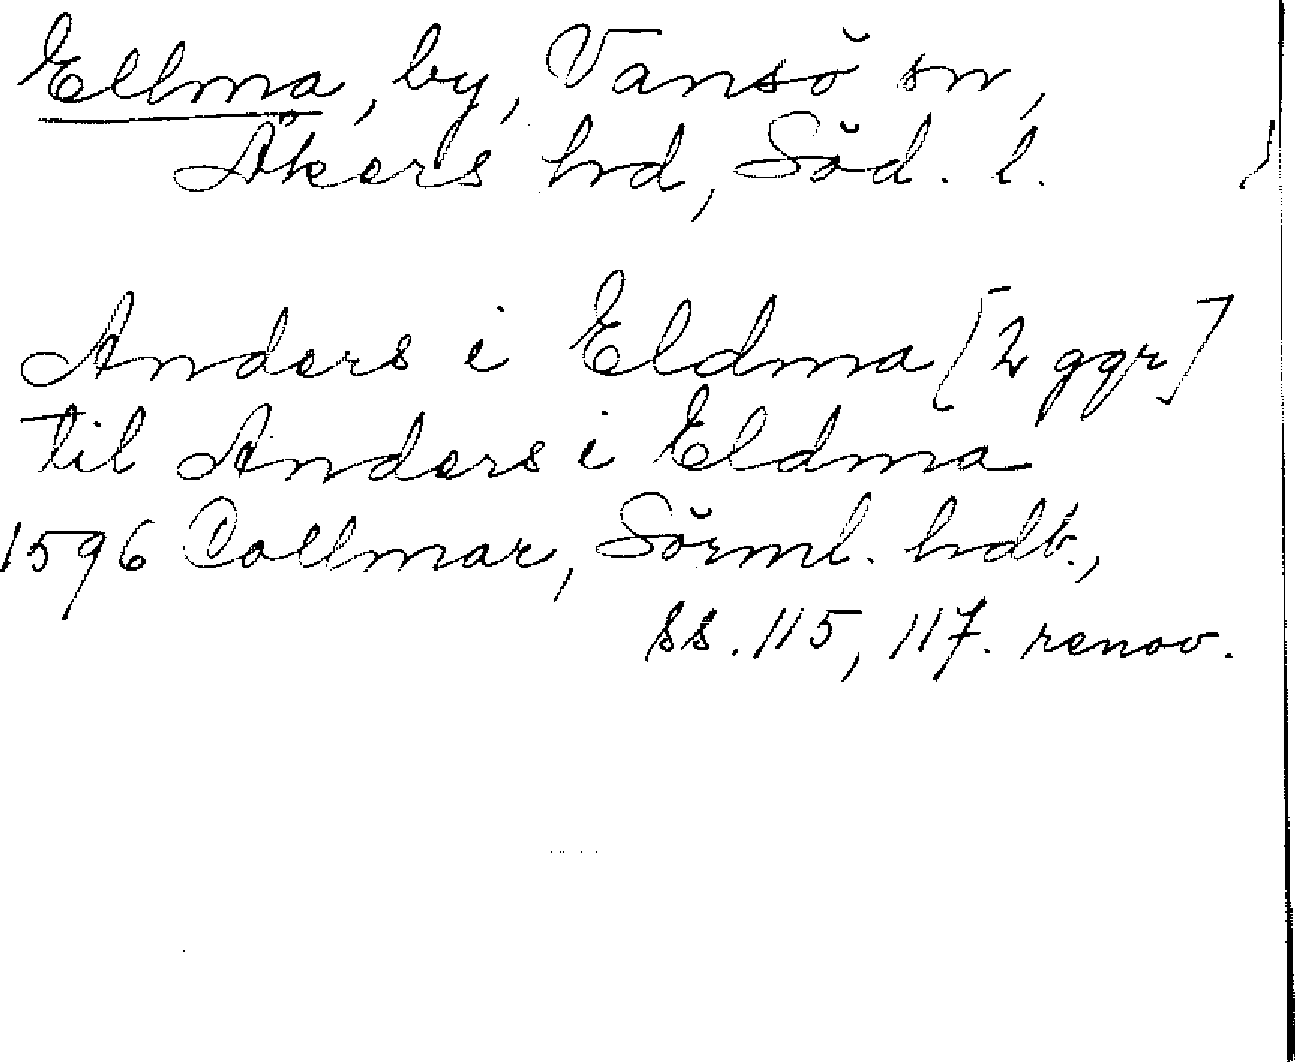 Ellma, by, Vansö sn,
Åkers hd, Söd. l.
Anders i Eldma [2 ggr]
til Anders i Eldma
1596 Collmar, Sörml. hdb.,
ss. 115, 117. renov.